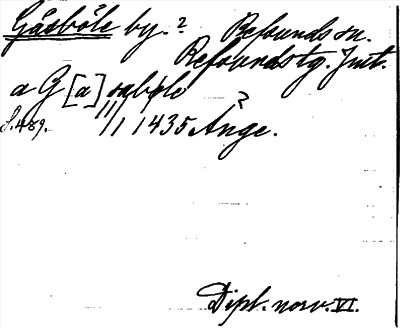 Gåsböle by.? Refsunds sn.
Refsunds tg. Jmt.
a G[a]sabøle
S. 489. 11/1 1435 Ange. ?
Dipl. norv. VI.